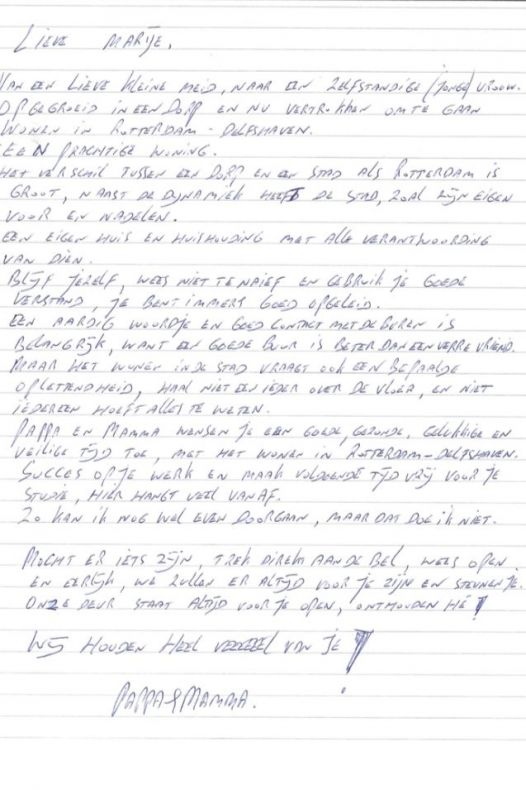 LIEVE MARIJE,
VAN EEN LIEVE KLEINE MEID, NAAR EEN ZELFSTANDIGE (JONGE) VROUW.
OPGEGROEID IN EEN DORP EN NU VERTROKKEN OM TE GAAN
WONEN IN ROTTERDAM - DELFSHAVEN.
EEN PRACHTIGE WONING.
HET VERSCHIL TUSSEN EEN DORP EN EN STAD ALS ROTTERDAM IS
GROOT, NAAST DE DYNAMIEK HEEFT DE STAD, ZOAL ZIJN EIGEN
VOOR EN NADELEN.
EEN EIGEN HUIS EN HUISHOUDING MET ALLE VERANTWOORDING
VAN DIEN.
BLIJF JEZELF, WEES NIET TE NAIEF EN GEBRUIK JE GOEDE
VERSTAND, JE BENT IMMERS GOED OPGELEID.
EEN AARDIG WOORDJE EN GOED CONTACT MET DE BUREN IS
BELANGRIJK, WANT EEN GOEDE BUUR IS BETER DAN EEN VERRE VRIEND.
MAAR HET WONEN IN DE STAD VRAAGT OOK EEN BEPAALDE
OPLETTENDHEID, HAAL NIET EEN IEDER OVER DE VLOER, EN NIET
IEDEREEN HOEFT ALLES TE WETEN.
PAPPA EN MAMMA WENSEN JE EEN GOEDE, GEZONDE, GELUKKIGE EN
VEILIGE TIJD TOE, MET HET WONEN IN ROTTERDAM - DELFSHAVEN.
SUCCES OP JE WERK EN MAAK VOLDOENDE TIJD VRIJ VOOR JE
STUDIE, HIER HANGT VEEL VANAF.
ZO KAN IK NOG WEL EVEN DOORGAAN, MAAR DAT DOE IK NIET.
MOCHT ER IETS ZIJN, TREK DIREKT AAN DE BEL, WEES OPEN
EN EERLIJK, WE ZULLEN ER ALTIJD VOOR JE ZIJN EN STEUNEN JE.
ONZE DEUR STAAT ALTIJD VOOR JE OPEN, ONTHOUDEN HÉ!
WIJ HOUDEN HEEL VEEEEEL VAN JE!
PAPPA & MAMMA.